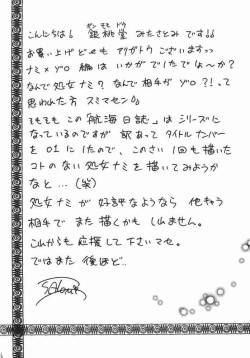 こんにちは! 銀桃堂 みたさとみ です!!
お買い上げど〜も アリガトウ ございますっっ
ナミ×ゾロ 編は いかがでしたでしょ〜か?
なんで処女ナミ? なんで相手がゾロ?!って
思われた方 スミマセン
そもそも この「航海日誌」は シリーズに
なっているのですが 改まって タイトルナンバー
を 01 にしたので、このさい 1回も 描いた
コトの ない 処女ナミを 描いてみようか
なと…(笑)
処女ナミが 好評なようなら 他キャラ
相手で また 描くかも しれません。
これからも 応援して 下さいマセ。
ではまた 後ほど…